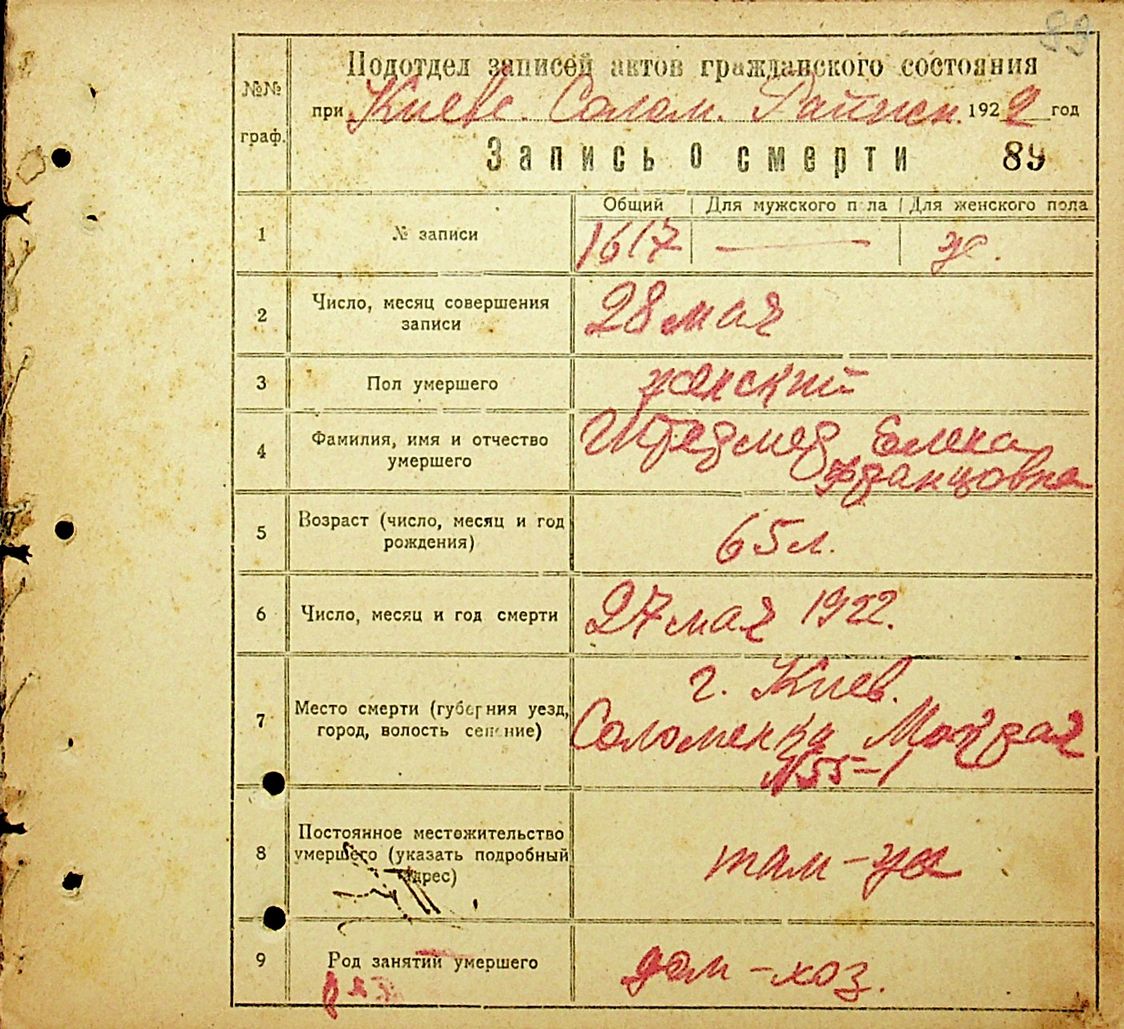 89
№№ граф.
Подотдел записей актов гражданского состояния
при Киеве. Солом. 1922 год
Запись о смерти 89
Общий | Для мужского пола | Для женского пола
1 № записи 1617 — ж.
2 Число, месяц совершения
записи
28 мая
3 Пол умершего женский
4 Фамилия, имя и отчество
умершего
Елена
Францовна
5 Возраст (число, месяц и год
рождения)
65 л.
6 Число, месяц и год смерти 27 мая 1922.
7 Место смерти (губерния уезд,
город, волость селение)
г. Киев.
Соломенка
№ 55-1
8 Постоянное местожительство
умершего (указать подробный
адрес)
там-же
9 Род занятий умершего дом-хоз.